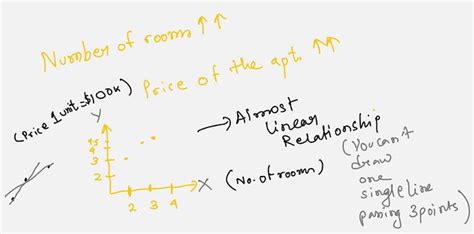 Number of rooms ↑↑
Price of the apt. ↑↑↑
(Price 1 unit = $100K)
Y
4.5
4
3
2
2 3 4
X
(No. of rooms)
→ Almost
linear
Relationship
(You can't
draw
one
single line
passing 3 points)